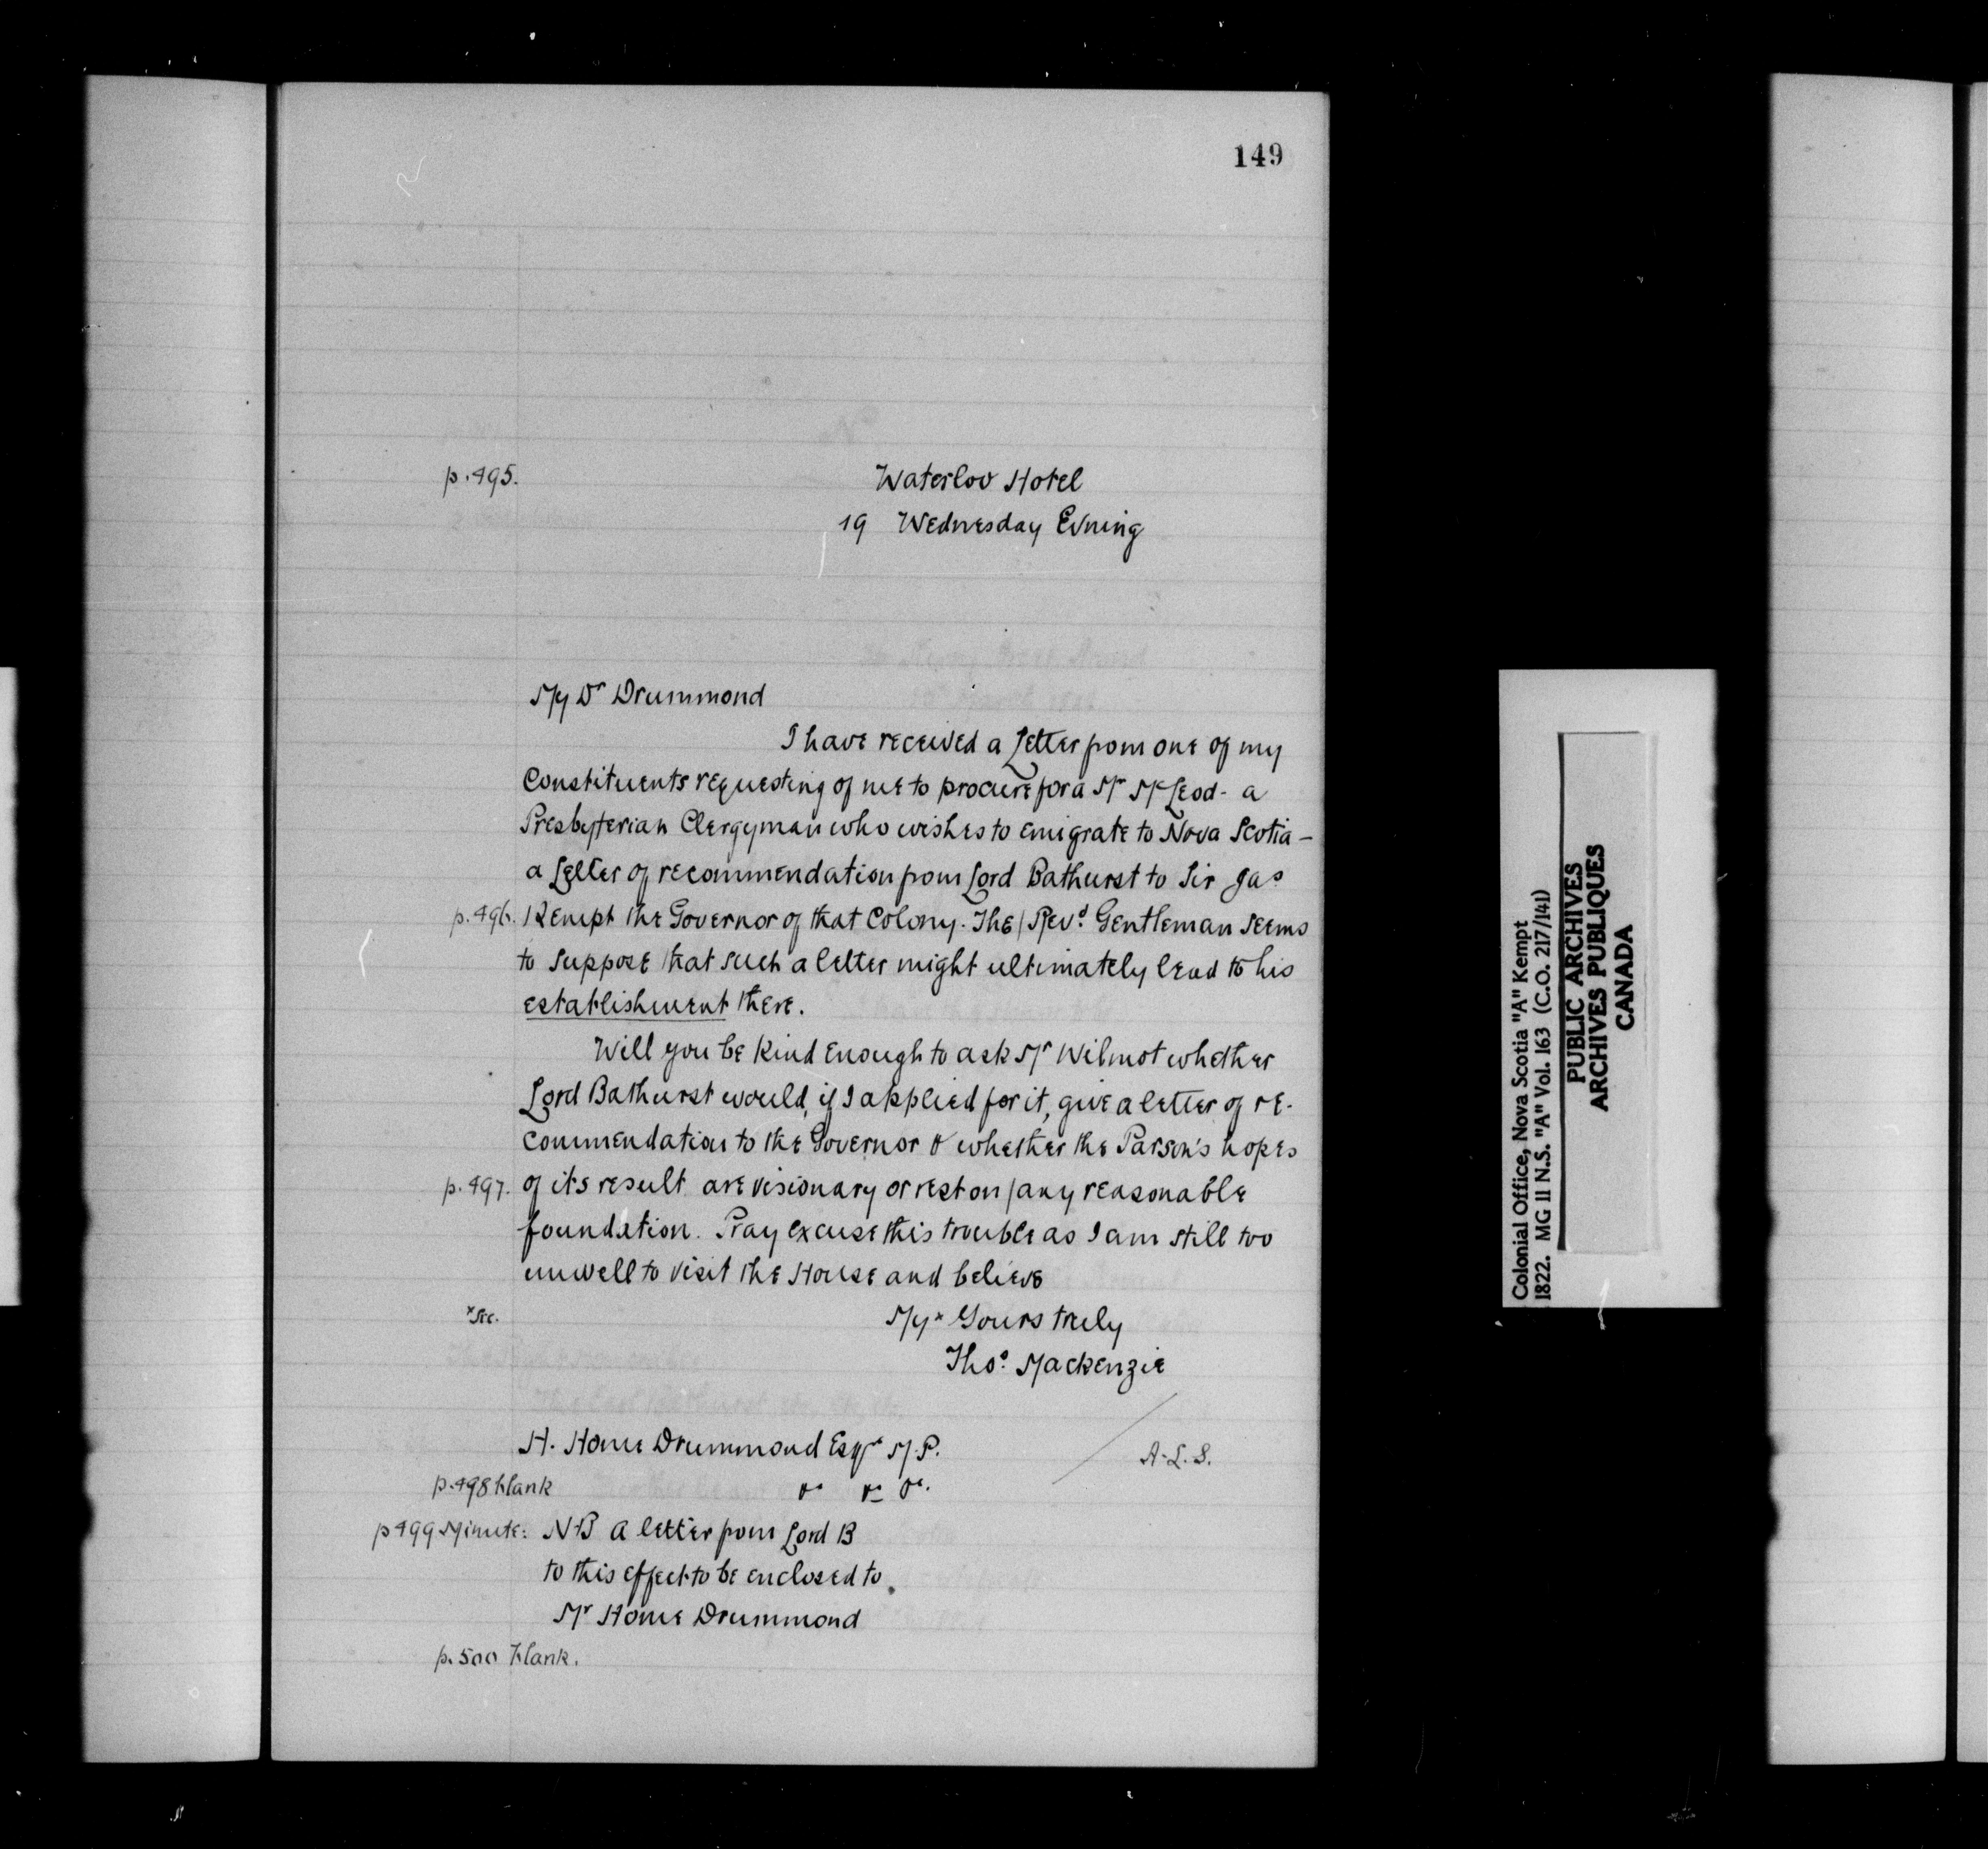 149
p. 495.
Waterloo Hotel
19 Wednesday Evning
My Dr Drummond
I have received a Letter from one of my
Constituents requesting of me to procure for a Mr McLeod - a
Presbyterian Clergyman who wishes to emigrate to Nova Scotia -
a Letter of recommendation from Lord Bathurst to Sir Jas
p. 496. Kempt the Governor of that Colony. The / Revd. Gentleman seems
to suppose that such a letter might ultimately lead to his
establishment there.
Will you be kind enough to ask Mr Wilmot whether
Lord Bathurst would, if I applied for it, give a letter of re-
commendation to the Governor & whether the Parson's hopes
p. 497. of its result are visionary or rest on / any reasonable
foundation. Pray excuse this trouble as I am still too
unwell to visit the House and believe
xSic. My x Yours truly
Thos. Mackenzie
H. Home Drummond Esqr M.P.
A.L.S.
p. 498 blank
&c &c &c.
p 499 Minute: NB a letter from Lord B
to this effect to be enclosed to
Mr Home Drummond
p. 500 blank.
Colonial Office, Nova Scotia "A" Kempt
1822. MG 11 N.S. "A" Vol. 163 (C.O. 217/141)
PUBLIC ARCHIVES
ARCHIVES PUBLIQUES
CANADA